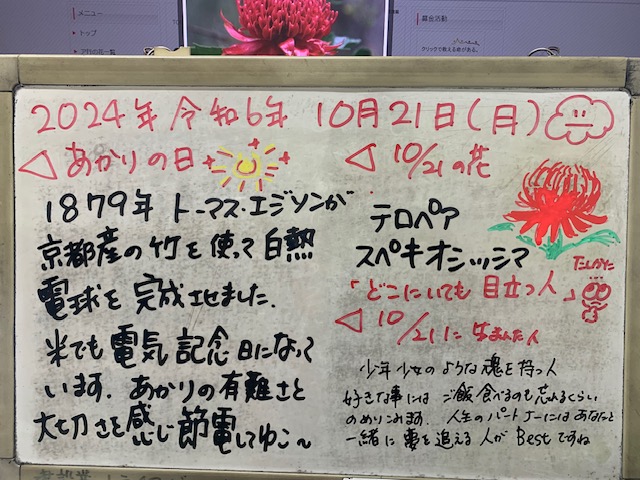 メニュー
トップ
募金活動
クリックで救える命がある。
2024年 令和6年 10月21日(月)
◁ あかりの日
1879年 トーマス・エジソンが
京都産の竹を使って白熱
電球を完成させました.
米でも電気記念日になって
います. あかりの有難さと
大切さを感じ節電してゆこ〜
◁ 10/21の花
テロペア
スペキオシッシマ
「どこにいても 目立つ人」
たしかに
◁ 10/21に生まれた人
少年少女のような魂を持つ人
好きな事には ご飯食べるのも忘れるくらい
のめりこみます. 人生のパートナーにはあなたと
一緒に夢を追える人が Bestですね